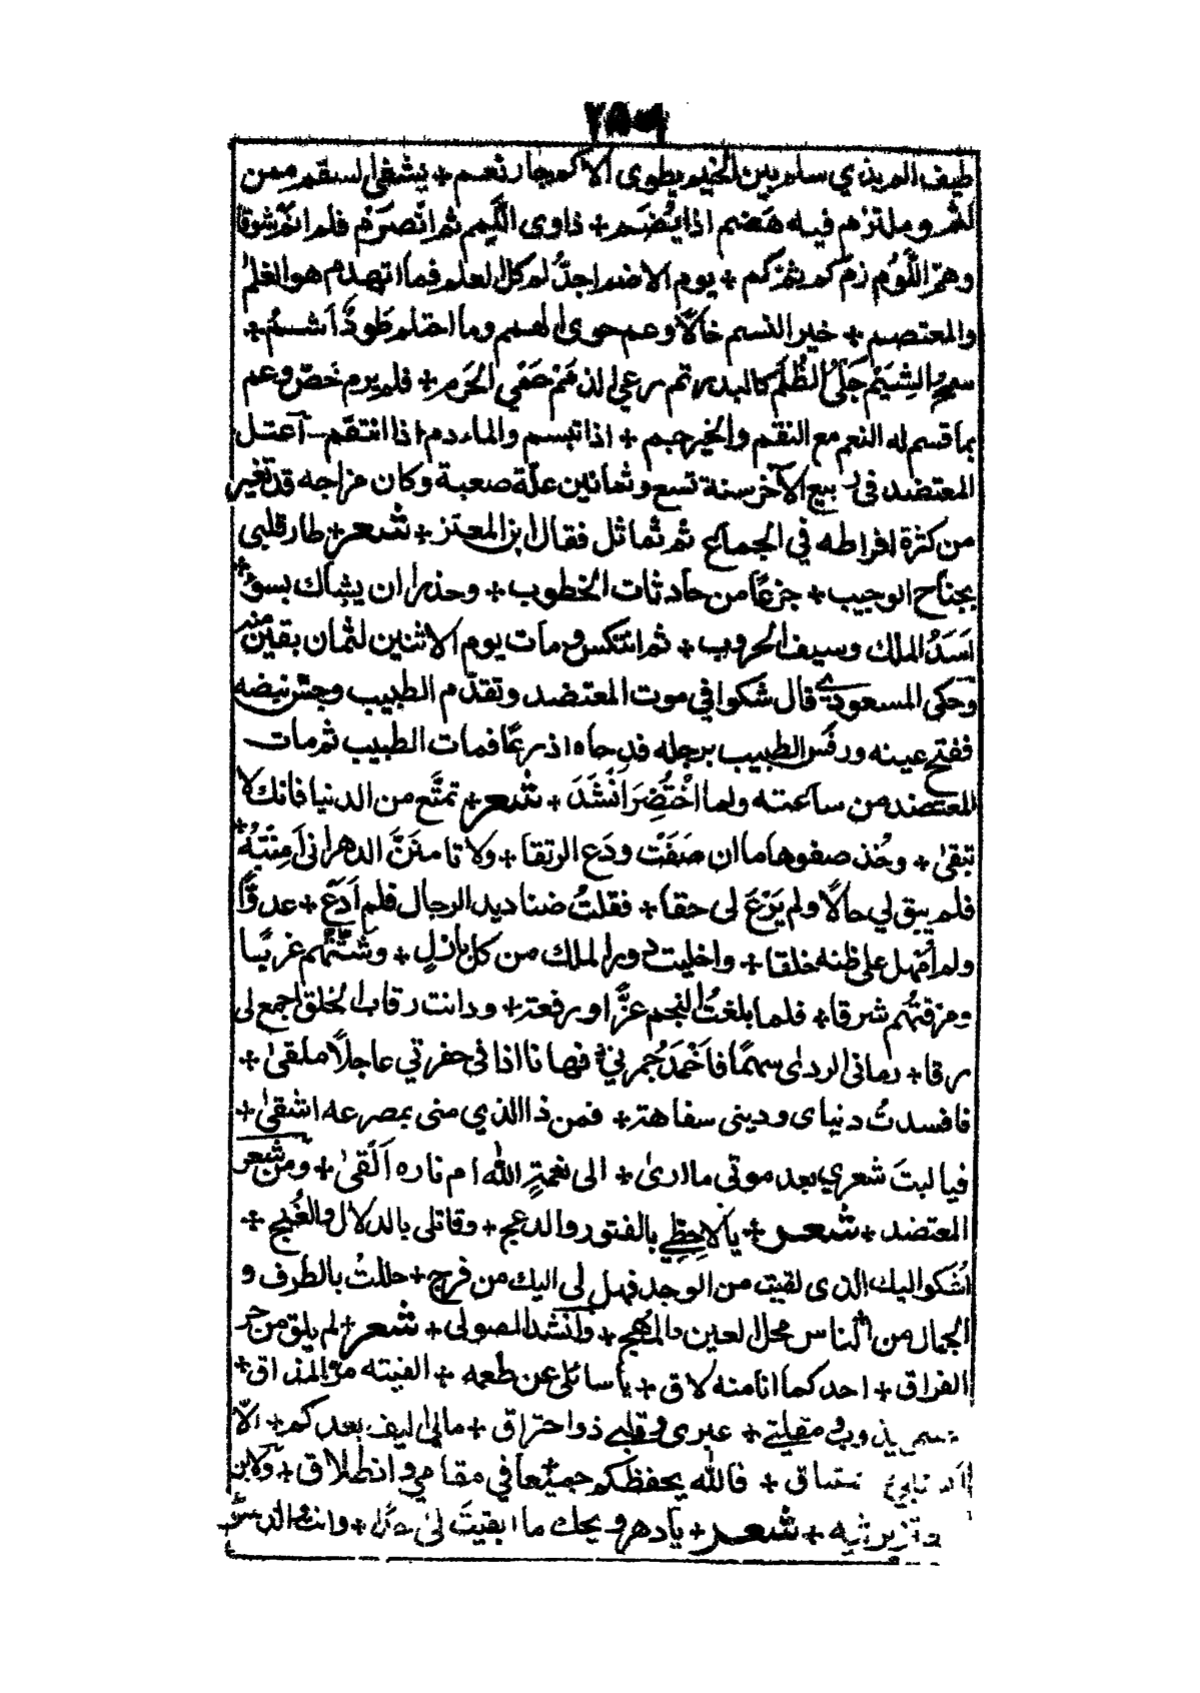 طيف الم بذي سلم بين الخيم يطوى الاكم جار نعم + يشفى السقم ممن
لثم وملتزم فيه هضم اذا يضم + داوى اللّيم ثم انصرم فلم انم شوقا
وهمّ اللّوم زمّ كم ثم كم + يوم الاضم اجدّ لم كل العلم فما انهدم هو العلم
والمعتصم + خير النسم خالًا وعم حوى الهمم وما احتلم طودٌ اشم +
سمح الشيم جلى الظلم كالبدر تم رعى الذمم حمى الحرم + فلم يرم خصّ وعم
بما قسم له النعم مع النقم والخير جم + اذا تبسم والماء دم اذا انتقم – اعتل
المعتضد فى ربيع الآخر سنة تسع وثمانين علّة صعبة وكان مزاجه قد تغير
من كثرة افراطه في الجماع ثم تماثل فقال ابن المعتز + شعر + طار قلبى
بجناح الوجيب + جزعًا من حادثات الخطوب + وحذرا ان يشاك بسوءٍ +
اَسَدُ الملك وسيف الحروب + ثم انتكس ومات يوم الاثنين لثمان بقين منه
وحكى المسعودي قال شكوا في موت المعتضد وتقدّم الطبيب وجسّ نبضه
ففتح عينه ورفس الطبيب برجله فدحاه اذرعًا فمات الطبيب ثم مات
المعتضد من ساعته ولما اُحْتُضِرَ اَنْشَدَ + شعر + تمتَّع من الدنيا فانك لا
تبقى + وخذ صفوها ما ان صَفَتْ ودَع الرنقا + ولا تامنَنَّ الدهر انى اَمِنْتُهُ +
فلم يبق لي حالًا ولم يَرْعَ لى حقا + فقلتُ صناديد الرجال فلم اَدَعْ + عدوًّا
ولم اُمهل على ظنه خلقا + واخليت دور الملك من كل بازلٍ + وشتّتهم غربًا
ومزقتُهم شرقا + فلما بلغتُ النجم عزًّا ورفعة + ودانت رقاب الخلق اجمع لى
رقا + رمانى الردى سهمًا فاَخْمَدَ جمرتي + فها نا اذا فى حفرتي عاجلًا ملقى +
فافسدتُ دنياى ودينى سفاهة + فمن ذا الذي منى بمصرعه اشقى +
فيا ليتَ شعري بعد موتي ما ارى + الى نعمةِ الله ام ناره اَلْقى + ومن شعر
المعتضد + شعر + يا لاحظي بالفتور والدعج + وقاتلى بالدلال والغُنج +
اشكو اليك الذى لقيت من الوجد فهل لى اليك من فرج + حللتُ بالظرف و
الجمال من الناس محل العين والمُهج + وانشد الصولى + شعر + لم يلق من حر
الفراق + احد كما انا منه لاق + يا سائلى عن طعمه + الفيته مرّ المذاق +
جسمى يذوب ومقلتي + عبرى وقلبى ذو احتراق + مالى اليف بعدكم + الّا
اكتئابي واشتياق + فالله يحفظكم جميعًا في مقامى وانطلاق + ولابن
المعتز يرثيه + شعر + يا دهر ويحك ما ابقيتَ لى احدًا + وانت والد سوءٍ